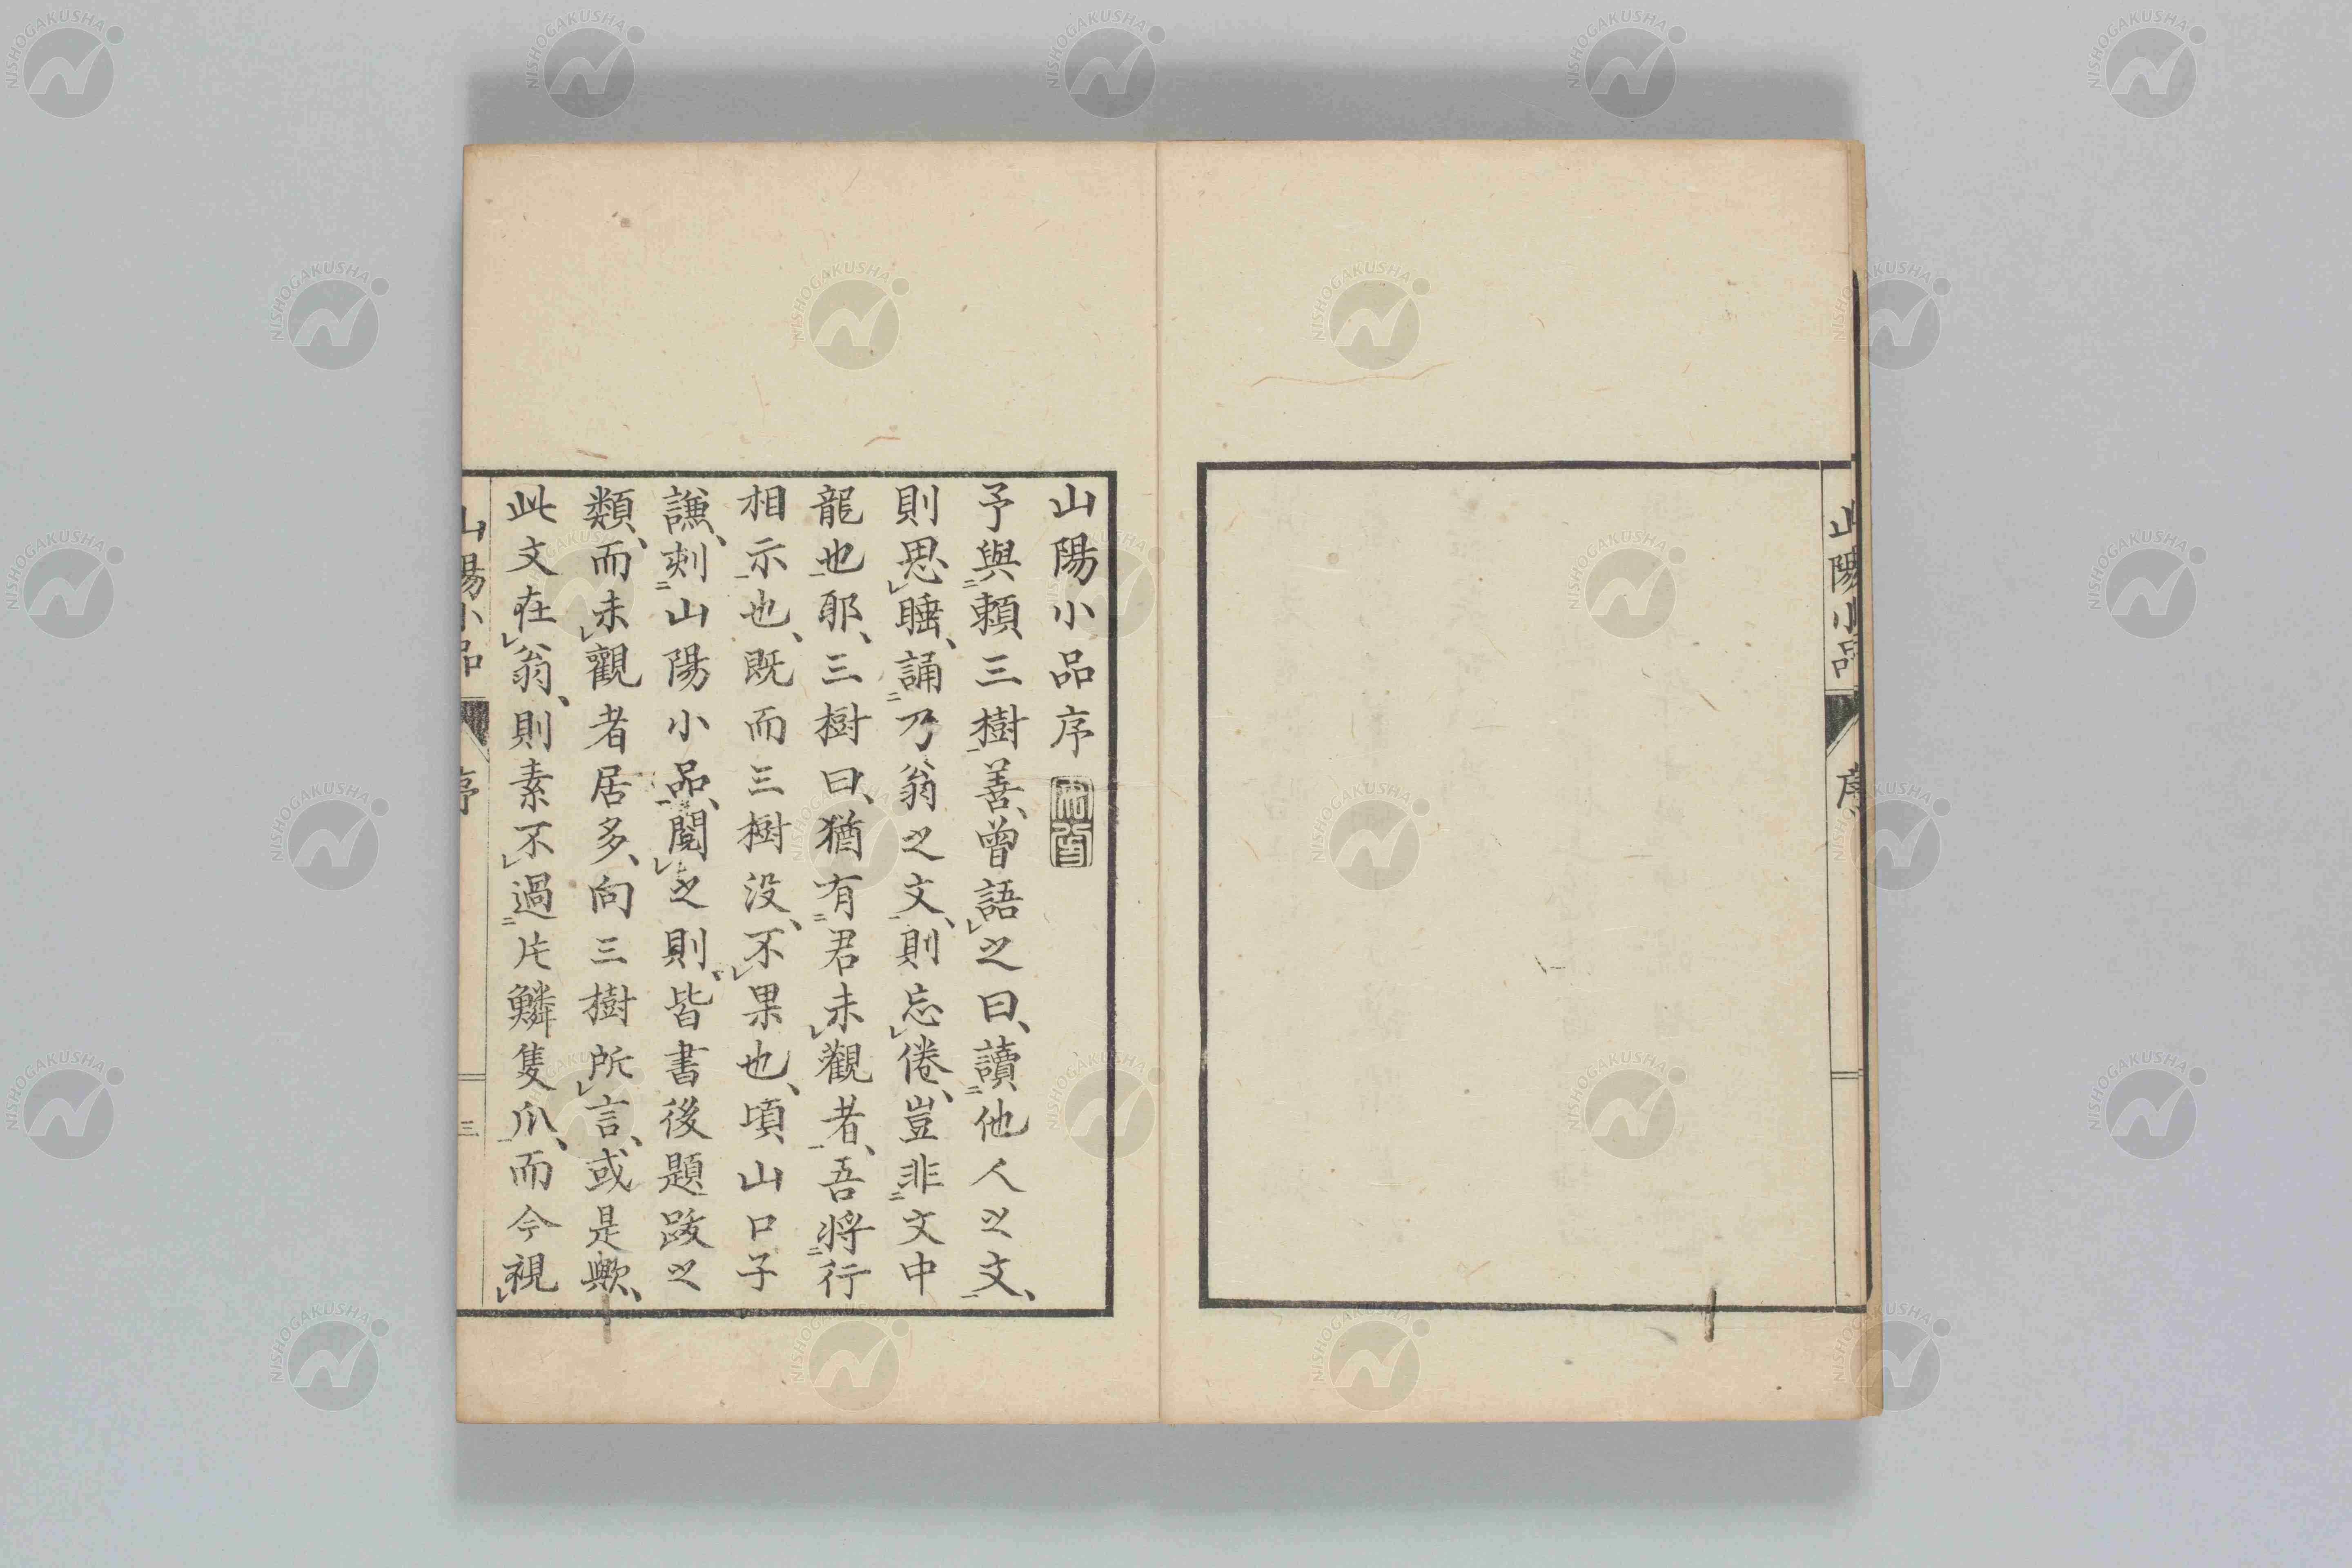 山陽小品
序
山陽小品序
予與賴三樹善、曾語之曰、讀他人之文、
則思睡、誦乃翁之文、則忘倦、豈非文中
龍也耶、三樹曰、猶有君未觀者、吾將行
相示也、既而三樹没、不果也、頃山口子
謙、刻山陽小品、閲之則皆書後題跋之
類、而未觀者居多、向三樹所言、或是歟、
此文在翁、則素不過片鱗隻爪、而今視
山陽小品
序
三
NISHOGAKUSHA